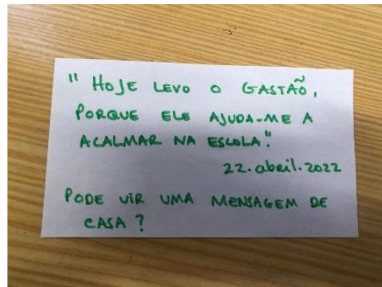 " HOJE LEVO O GASTÃO,
PORQUE ELE AJUDA-ME A
ACALMAR NA ESCOLA."
22.abril.2022
PODE VIR UMA MENSAGEM DE
CASA ?